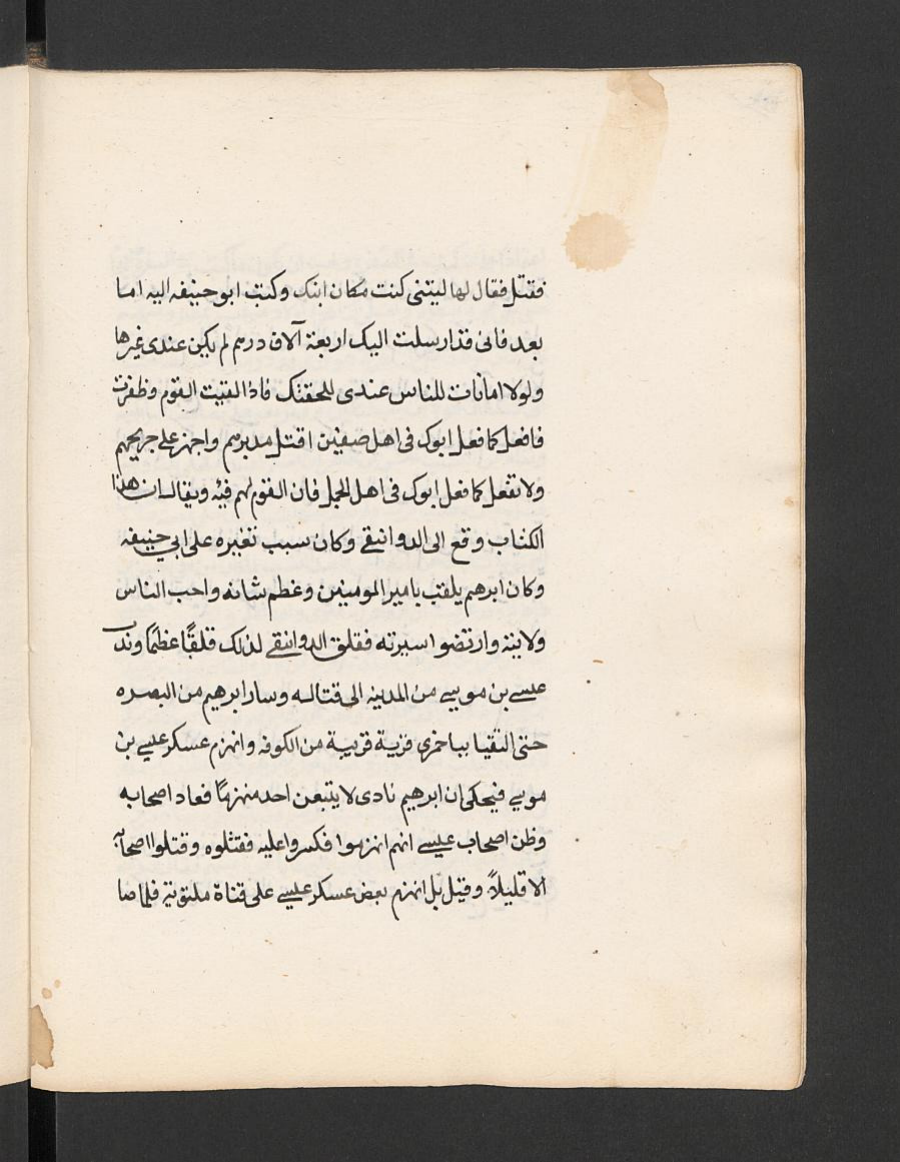 فقتل فقال لها ليتنى كنت مكان ابنك وكتب ابو حنيفه اليه اما
بعد فانى قد ارسلت اليك اربعة آلاف درهم لم يكن عندى غيرها
ولولا امانات للناس عندى للحقتك فاذا لقيت القوم وظفرت
فافعل كما فعل ابوك فى اهل صفين اقتل مدبرهم واجهز على جريحهم
ولا تفعل كما فعل ابوك فى اهل الجمل فان القوم لهم فئه ويقال ان هذا
الكتاب وقع الى الدوانيقے وكان سبب تغيره على ابي حنيفه
وكان ابرهيم يلقب بامير المومنين وعظم شانه واحب الناس
ولايته وارتضوا سيرته فقلق الدوانيقے لذلك قلقًا عظيمًا وندب
عيسے بن موسے من المدينه الى قتاله وسار ابرهيم من البصره
حتى التقيا بباخمرى قرية قريبة من الكوفه وانهزم عسكر عيسے بن
موسے فيحكى ان ابرهيم نادى لا يتبعن احد منهزمًا فعاد اصحابه
وظن اصحاب عيسے انهم انهزموا فكروا عليه فقتلوه وقتلوا اصحابه
الا قليلاً وقيل بل انهزم بعض عسكر عيسے على قناة ملتوية فلما صا